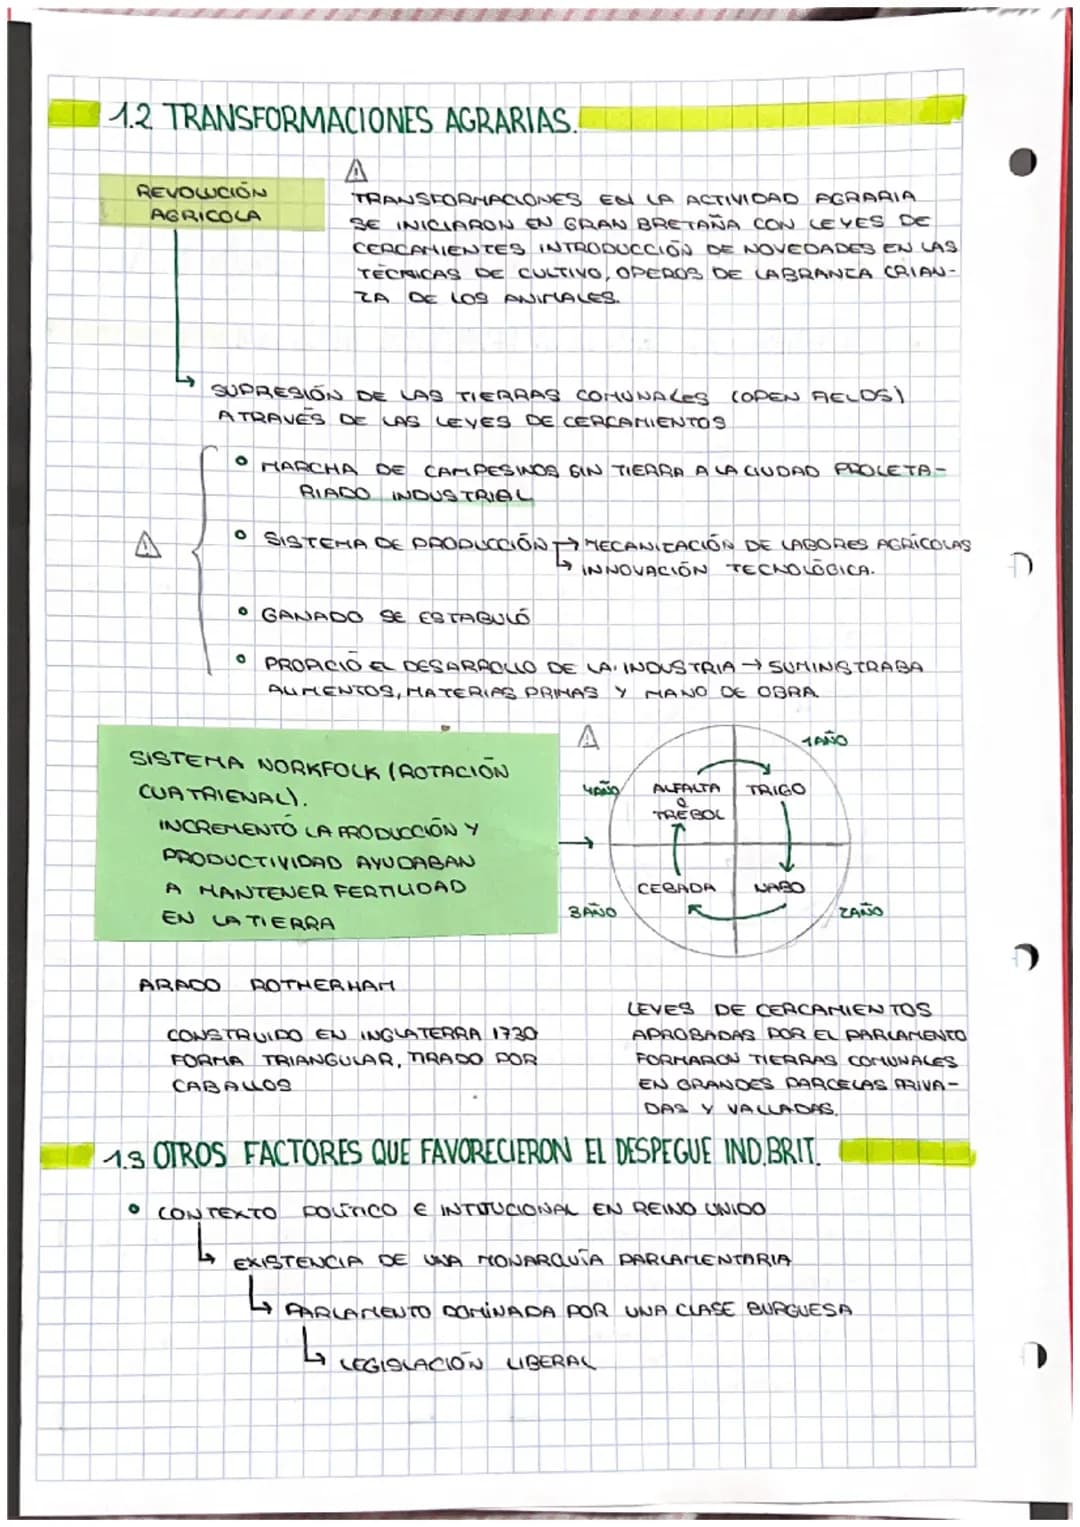 1.2 TRANSFORMACIONES AGRARIAS.
REVOLUCIÓN
AGRICOLA
TRANSFORMACIONES EN LA ACTIVIDAD AGRARIA
SE INICIARON EN GRAN BRETAÑA CON LEYES DE
CERCAMIENTES INTRODUCCIÓN DE NOVEDADES EN LAS
TÉCNICAS DE CULTIVO, OPEROS DE LABRANZA CRIAN-
ZA DE LOS ANIMALES.
SUPRESIÓN DE LAS TIERRAS COMUNALES (OPEN FIELDS)
A TRAVÉS DE LAS LEYES DE CERCAMIENTOS
• MARCHA DE CAMPESINOS SIN TIERRA A LA CIUDAD PROLETA-
RIADO INDUSTRIAL
• SISTEMA DE PRODUCCIÓN → MECANIZACIÓN DE LABORES AGRÍCOLAS
↳ INNOVACIÓN TECNOLÓGICA.
• GANADO SE ESTABULÓ
• PROPICIÓ EL DESARROLLO DE LA INDUSTRIA → SUMINISTRABA
ALIMENTOS, MATERIAS PRIMAS Y MANO DE OBRA
SISTEMA NORKFOLK (ROTACIÓN
CUATRIENAL).
INCREMENTÓ LA PRODUCCIÓN Y
PRODUCTIVIDAD AYUDABAN
A MANTENER FERTILIDAD
EN LA TIERRA
1AÑO
4AÑO
ALFALTA
O
TRÉBOL
TRIGO
CEBADA
NABO
3AÑO
2AÑO
ARADO ROTHERHAM
CONSTRUIDO EN INGLATERRA 1730
FORMA TRIANGULAR, TIRADO POR
CABALLOS
LEYES DE CERCAMIENTOS
APROBADAS POR EL PARLAMENTO
FORMARON TIERRAS COMUNALES
EN GRANDES PARCELAS PRIVA-
DAS Y VALLADAS.
1.3 OTROS FACTORES QUE FAVORECIERON EL DESPEGUE IND.BRIT.
• CONTEXTO POLÍTICO E INTITUCIONAL EN REINO UNIDO
↳ EXISTENCIA DE UNA MONARQUÍA PARLAMENTARIA
↳ PARLAMENTO DOMINADA POR UNA CLASE BURGUESA
↳ LEGISLACIÓN LIBERAL